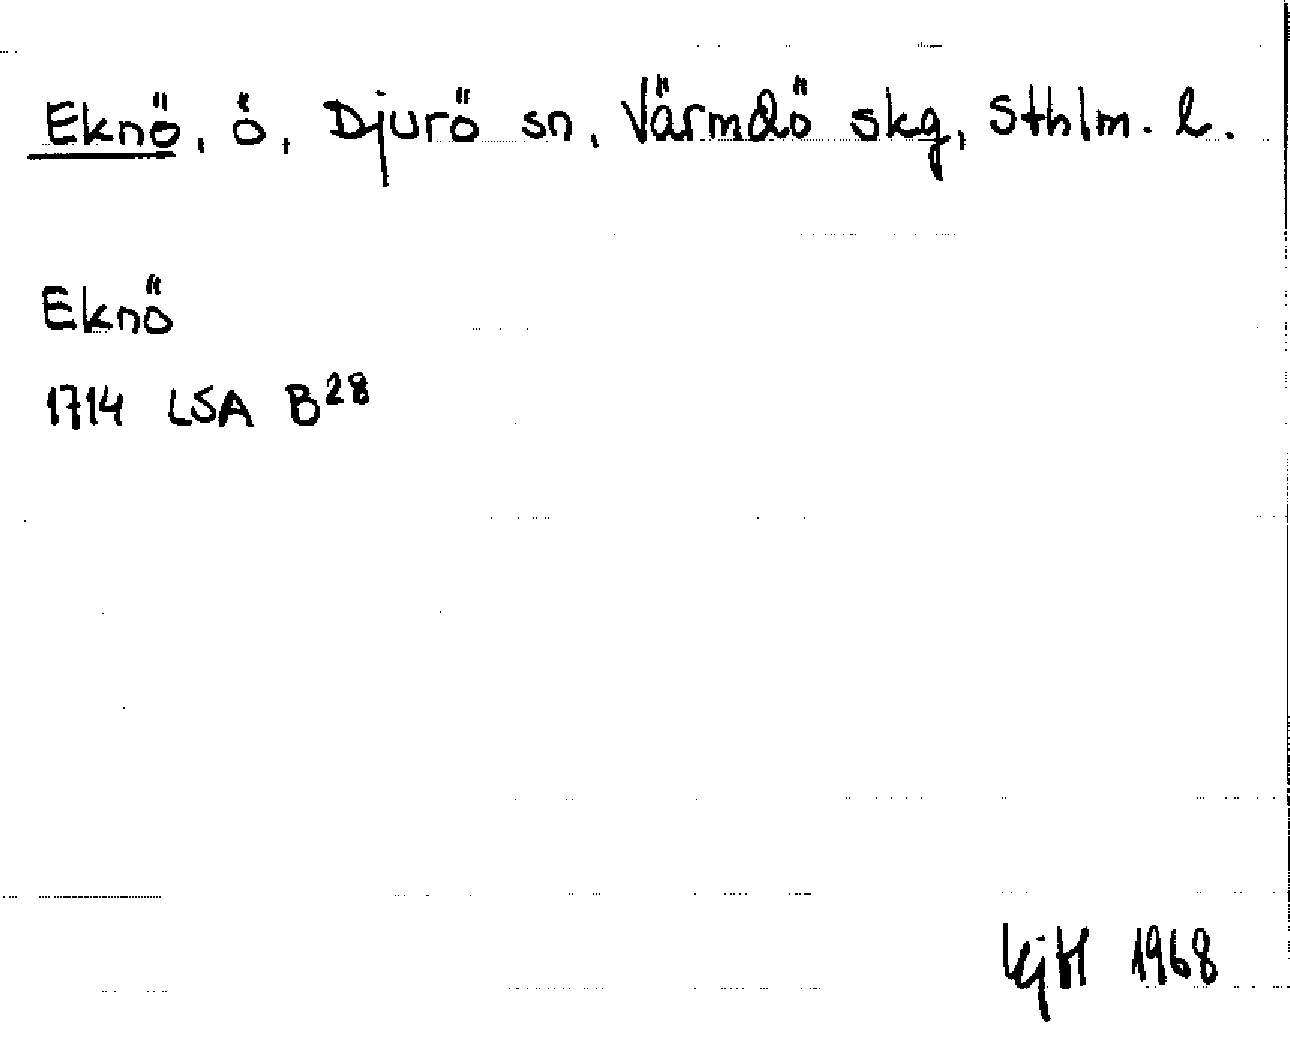 Eknö, ö, Djurö sn, Värmdö skg, Sthlm. l.
Eknö
1714 LSA B28
KjH 1968